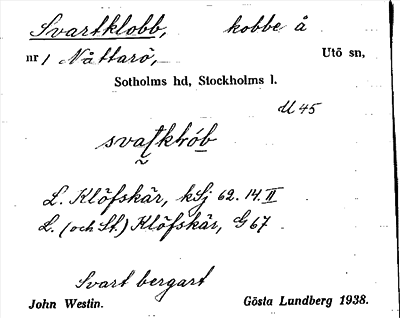 Svartklobb, kobbe å
nr 1 Nåttarö, Utö sn,
Sotholms hd, Stockholms l.
U 45
L. Klöfskär, kSj 62. 14. II
L. (och St.) Klöfskär, G 67
Svart bergart
John Westin. Gösta Lundberg 1938.